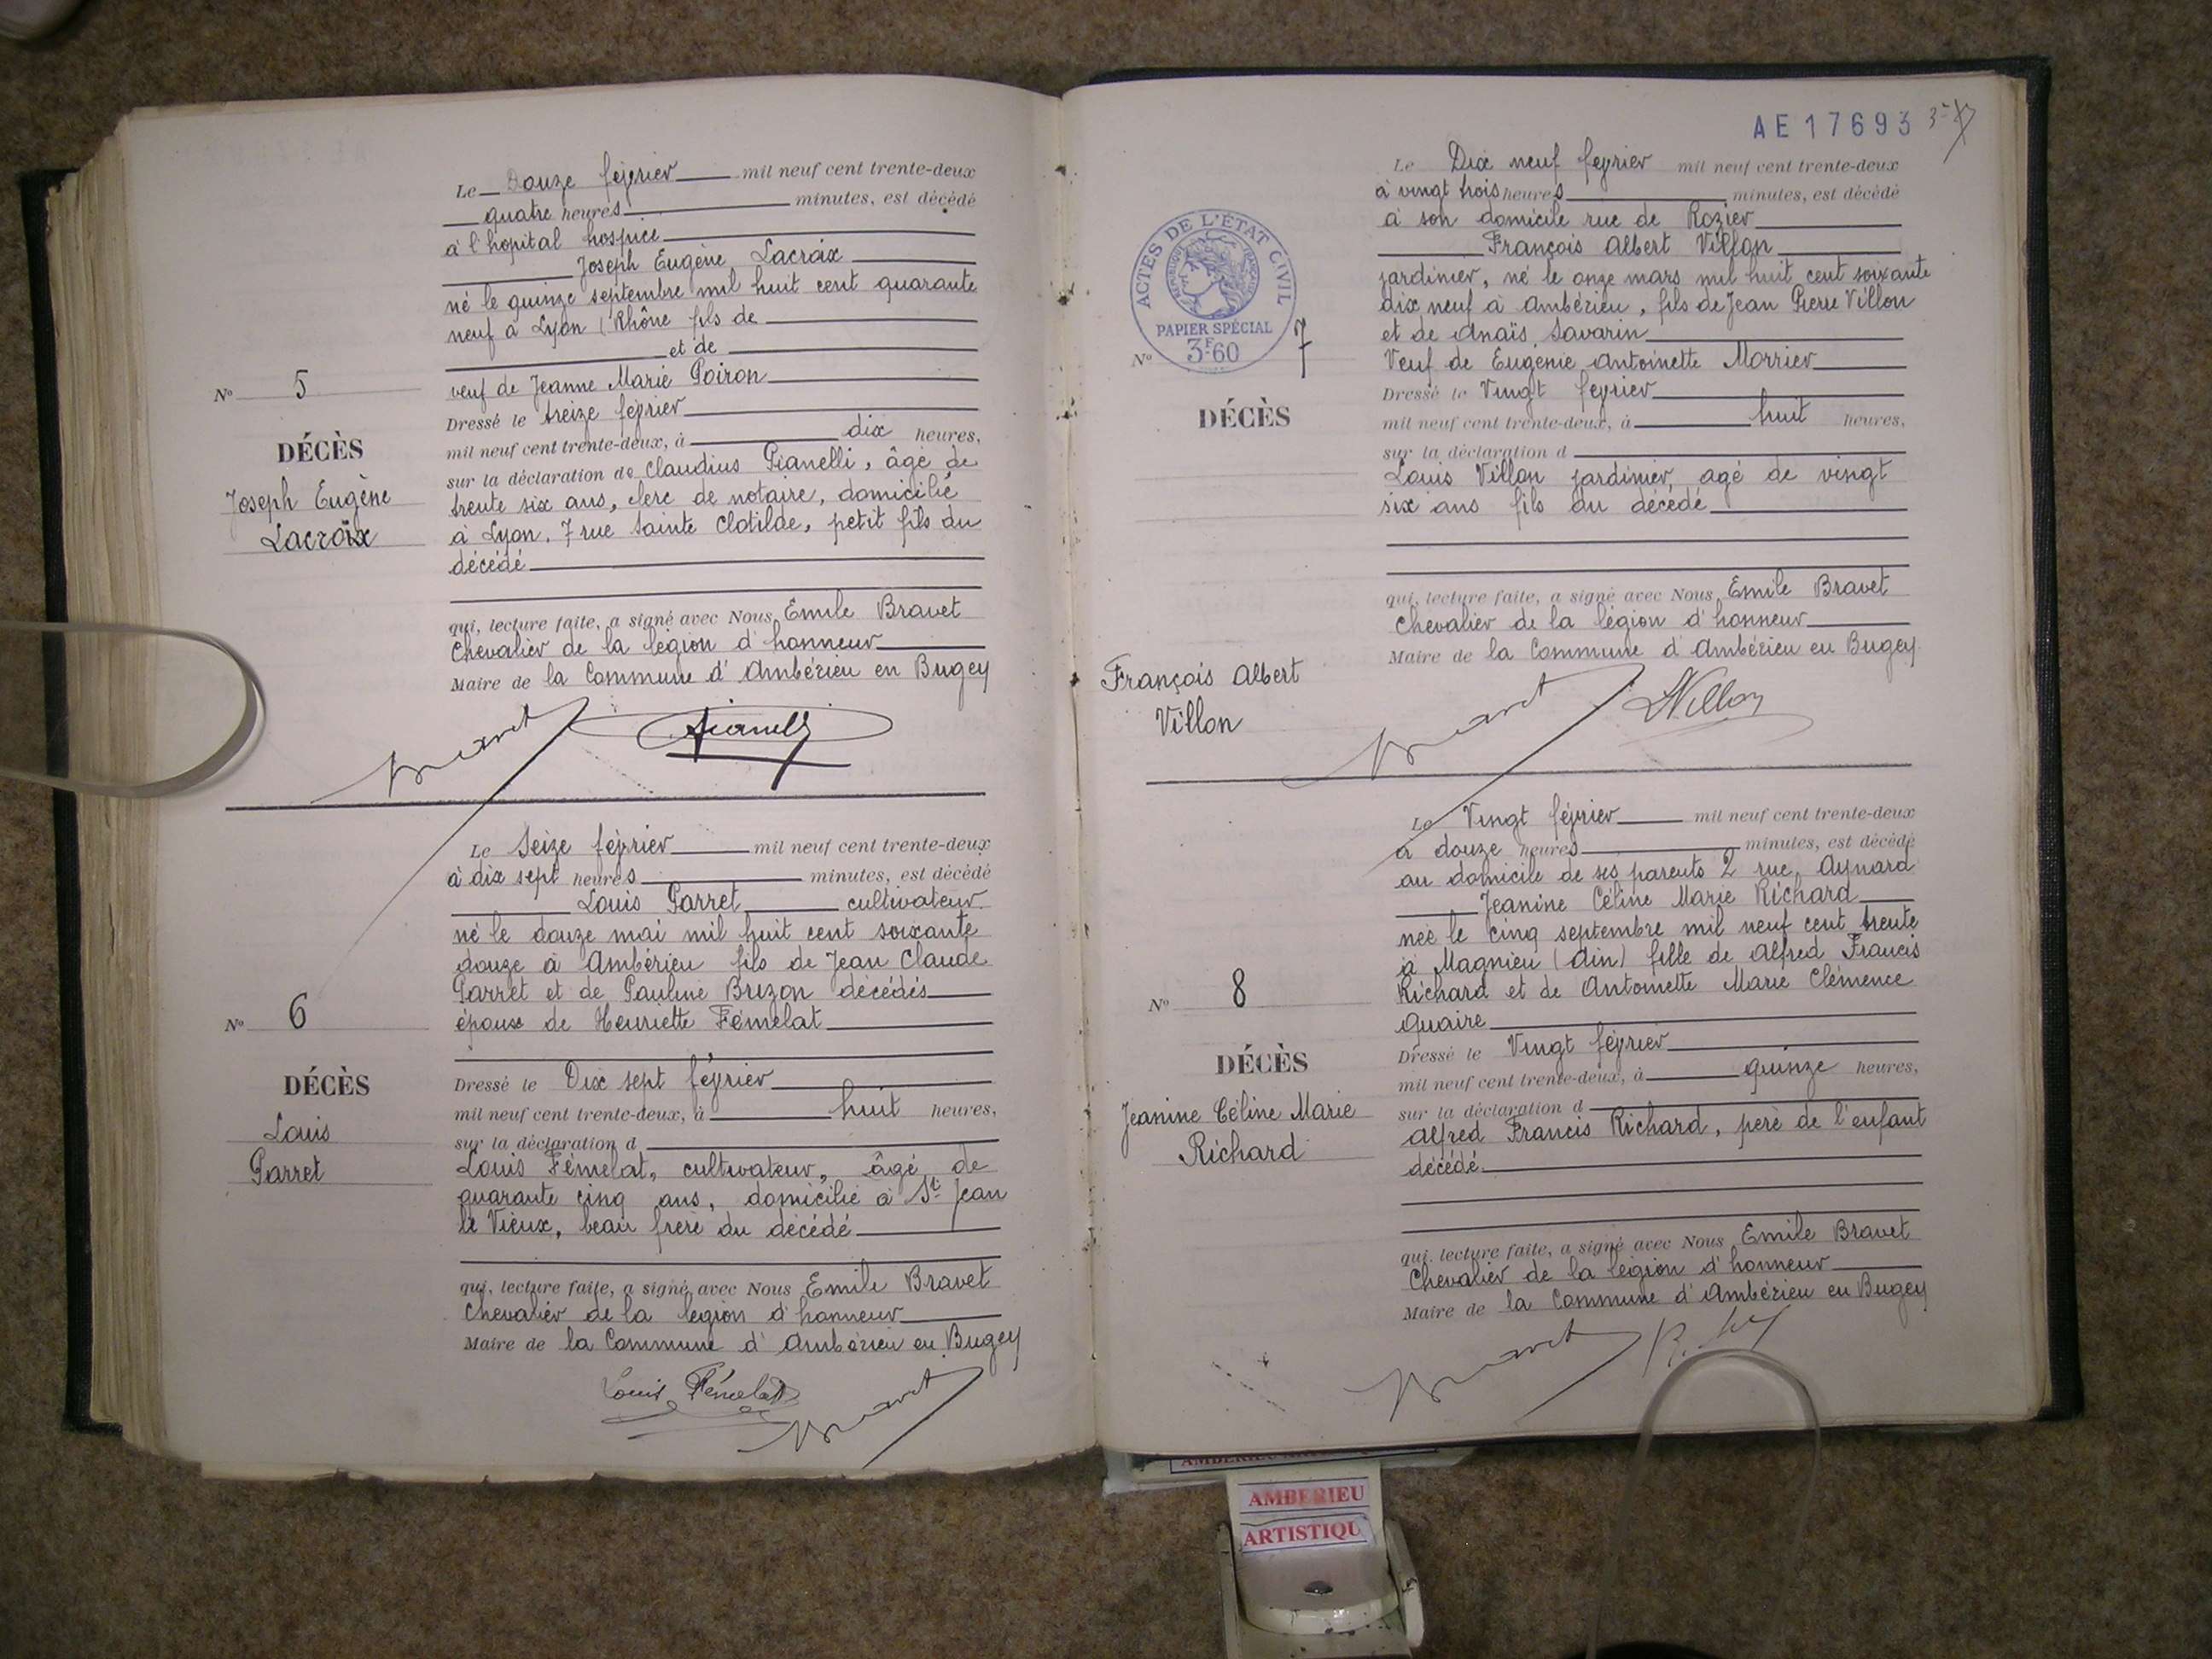 Le Douze février mil neuf cent trente-deux
quatre heures minutes, est décédé
à l'hopital hospice
Joseph Eugène Lacroix
né le quinze septembre mil huit cent quarante
neuf à Lyon (Rhône fils de
et de
veuf de Jeanne Marie Poiron
Dressé le treize février
mil neuf cent trente-deux, à dix heures,
sur la déclaration de Claudius Pianelli, âgé de
trente six ans, clerc de notaire, domicilié
à Lyon, 7 rue Sainte Clotilde, petit fils du
décédé
qui, lecture faite, a signé avec Nous Emile Bravet
Chevalier de la légion d'honneur
Maire de la Commune d'Ambérieu en Bugey
No 5
DÉCÈS
Joseph Eugène
Lacroix
Bravet
Pianelli
Le Seize février mil neuf cent trente-deux
à dix sept heures minutes, est décédé
Louis Parret cultivateur
né le douze mai mil huit cent soixante
douze à Ambérieu fils de Jean Claude
Parret et de Pauline Brizon décédés
époux de Henriette Fémelat
Dressé le Dix sept février
mil neuf cent trente-deux, à huit heures,
sur la déclaration d
Louis Fémelat, cultivateur, âgé de
quarante cinq ans, domicilié à St Jean
le Vieux, beau frère du décédé
qui, lecture faite, a signé avec Nous Emile Bravet
Chevalier de la légion d'honneur
Maire de la Commune d'Ambérieu en Bugey
No 6
DÉCÈS
Louis
Parret
Louis Fémelat
Bravet
AE17693
Le Dix neuf février mil neuf cent trente-deux
à vingt trois heures minutes, est décédé
à son domicile rue de Rozier
François Albert Villon
jardinier, né le onze mars mil huit cent soixante
dix neuf à Ambérieu, fils de Jean Pierre Villon
et de Anaïs Savarin
Veuf de Eugénie Antoinette Morrier
Dressé le Vingt février
mil neuf cent trente-deux, à huit heures,
sur la déclaration d
Louis Villon jardinier, agé de vingt
six ans fils du décédé
qui, lecture faite, a signé avec Nous Emile Bravet
Chevalier de la légion d'honneur
Maire de la Commune d'Ambérieu en Bugey
ACTES DE L'ÉTAT CIVIL
RÉPUBLIQUE FRANÇAISE
PAPIER SPÉCIAL
3F60
No 7
DÉCÈS
François Albert
Villon
Bravet
LVillon
Le Vingt février mil neuf cent trente-deux
à douze heures minutes, est décédé
au domicile de ses parents 2 rue Aynard
Jeanine Céline Marie Richard
née le cinq septembre mil neuf cent trente
à Magnieu (Ain) fille de Alfred Francis
Richard et de Antoinette Marie Clémence
Quaire
Dressé le Vingt février
mil neuf cent trente-deux, à quinze heures,
sur la déclaration d
Alfred Francis Richard, père de l'enfant
décédé
qui, lecture faite, a signé avec Nous Emile Bravet
Chevalier de la légion d'honneur
Maire de la Commune d'Ambérieu en Bugey
No 8
DÉCÈS
Jeanine Céline Marie
Richard
Bravet
AMBERIEU
ARTISTIQU